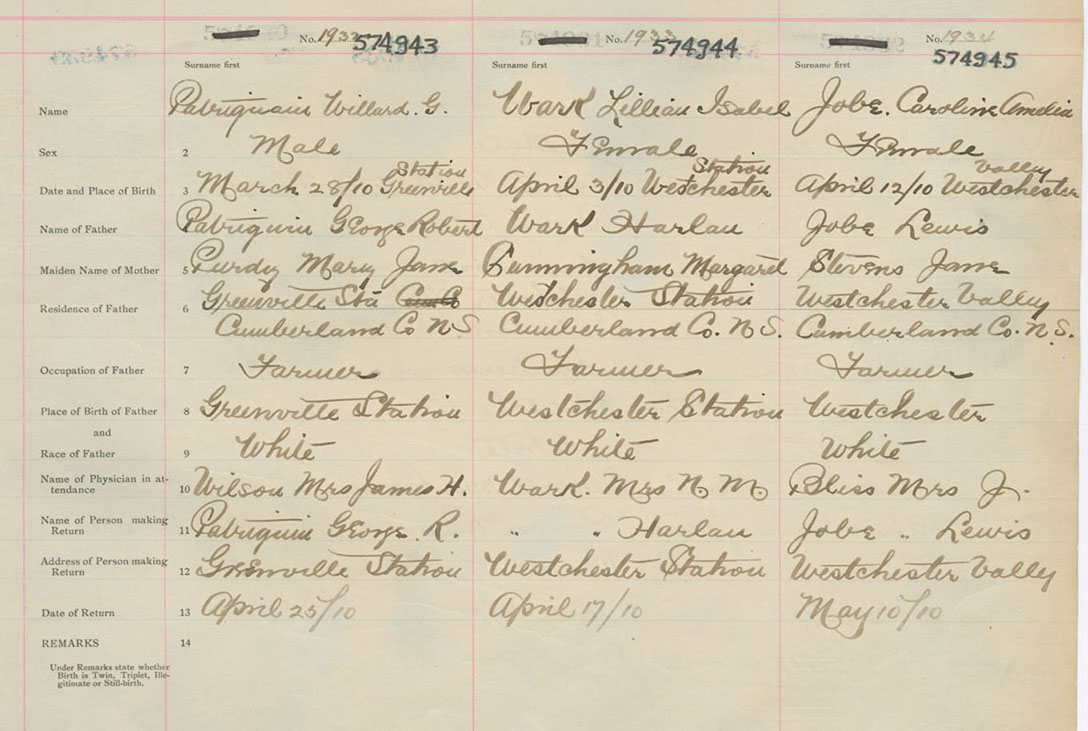 No. 1932 574943 No. 1933 574944 No. 1934 574945
Surname first Surname first Surname first
Name Patriquin Willard. G. Wark Lillian Isabel Jobe. Caroline Amelia
Sex 2 Male Female Female
Station Station Valley
Date and Place of Birth 3 March 28/10 Greenville April 3/10 Westchester April 12/10 Westchester
Name of Father Patriquin George Robert Wark Harlan Jobe Lewis
Maiden Name of Mother 5 Purdy Mary Jane Cunningham Margaret Stevens Jane
Greenville Sta Westchester Station Westchester Valley
Residence of Father 6
Cumberland Co N S Cumberland Co. N S. Cumberland Co. N. S.
Occupation of Father 7 Farmer Farmer Farmer
Place of Birth of Father 8 Greenville Station Westchester Station Westchester
and
Race of Father 9 White White White
Name of Physician in at-
tendance 10 Wilson Mrs James H. Wark. Mrs N. M. Bliss Mrs J.
Name of Person making
Return 11 Patriquin George R. " " Harlan Jobe " Lewis
Address of Person making
Return 12 Greenville Station Westchester Station Westchester Valley
Date of Return 13 April 25/10 April 17/10 May 10/10
REMARKS 14
Under Remarks state whether
Birth is Twin, Triplet, Ille-
gitimate or Still-birth.